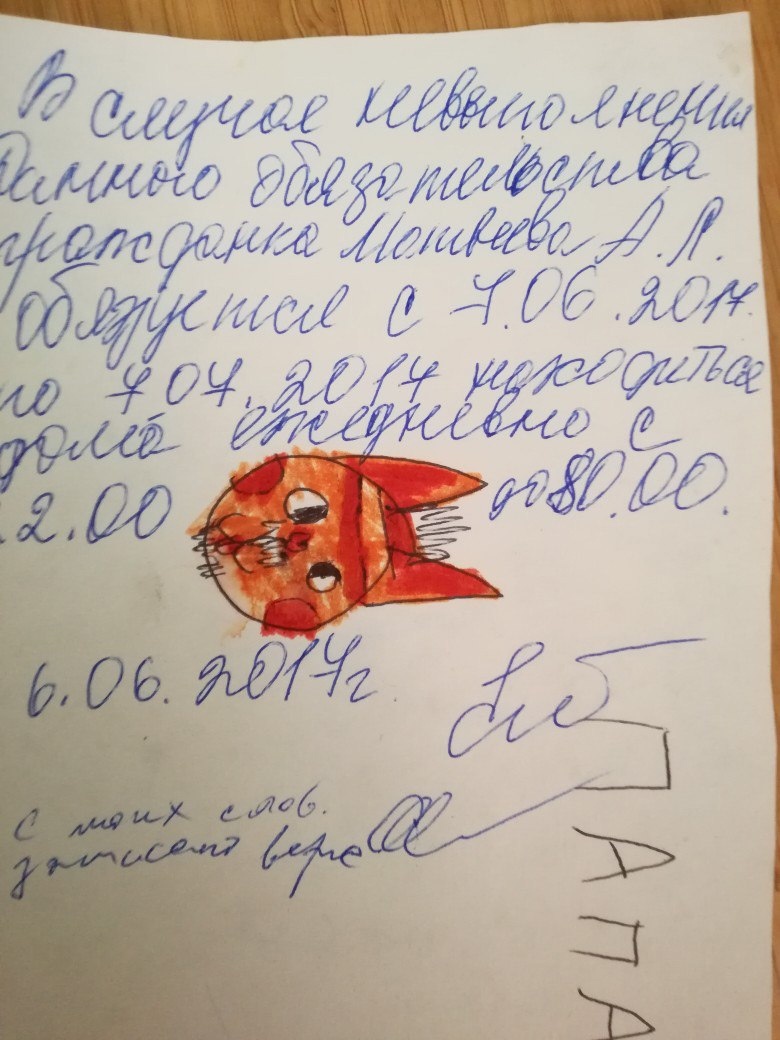 В случае невыполнения
данного обязательства
гражданка Матвеева А.Л.
обязуется с 7.06.2017
по 7 07.2017 находиться
дома ежедневно с
2.00 до 80.00.
6.06.2017г
с моих слов.
записано верно
ПАПА